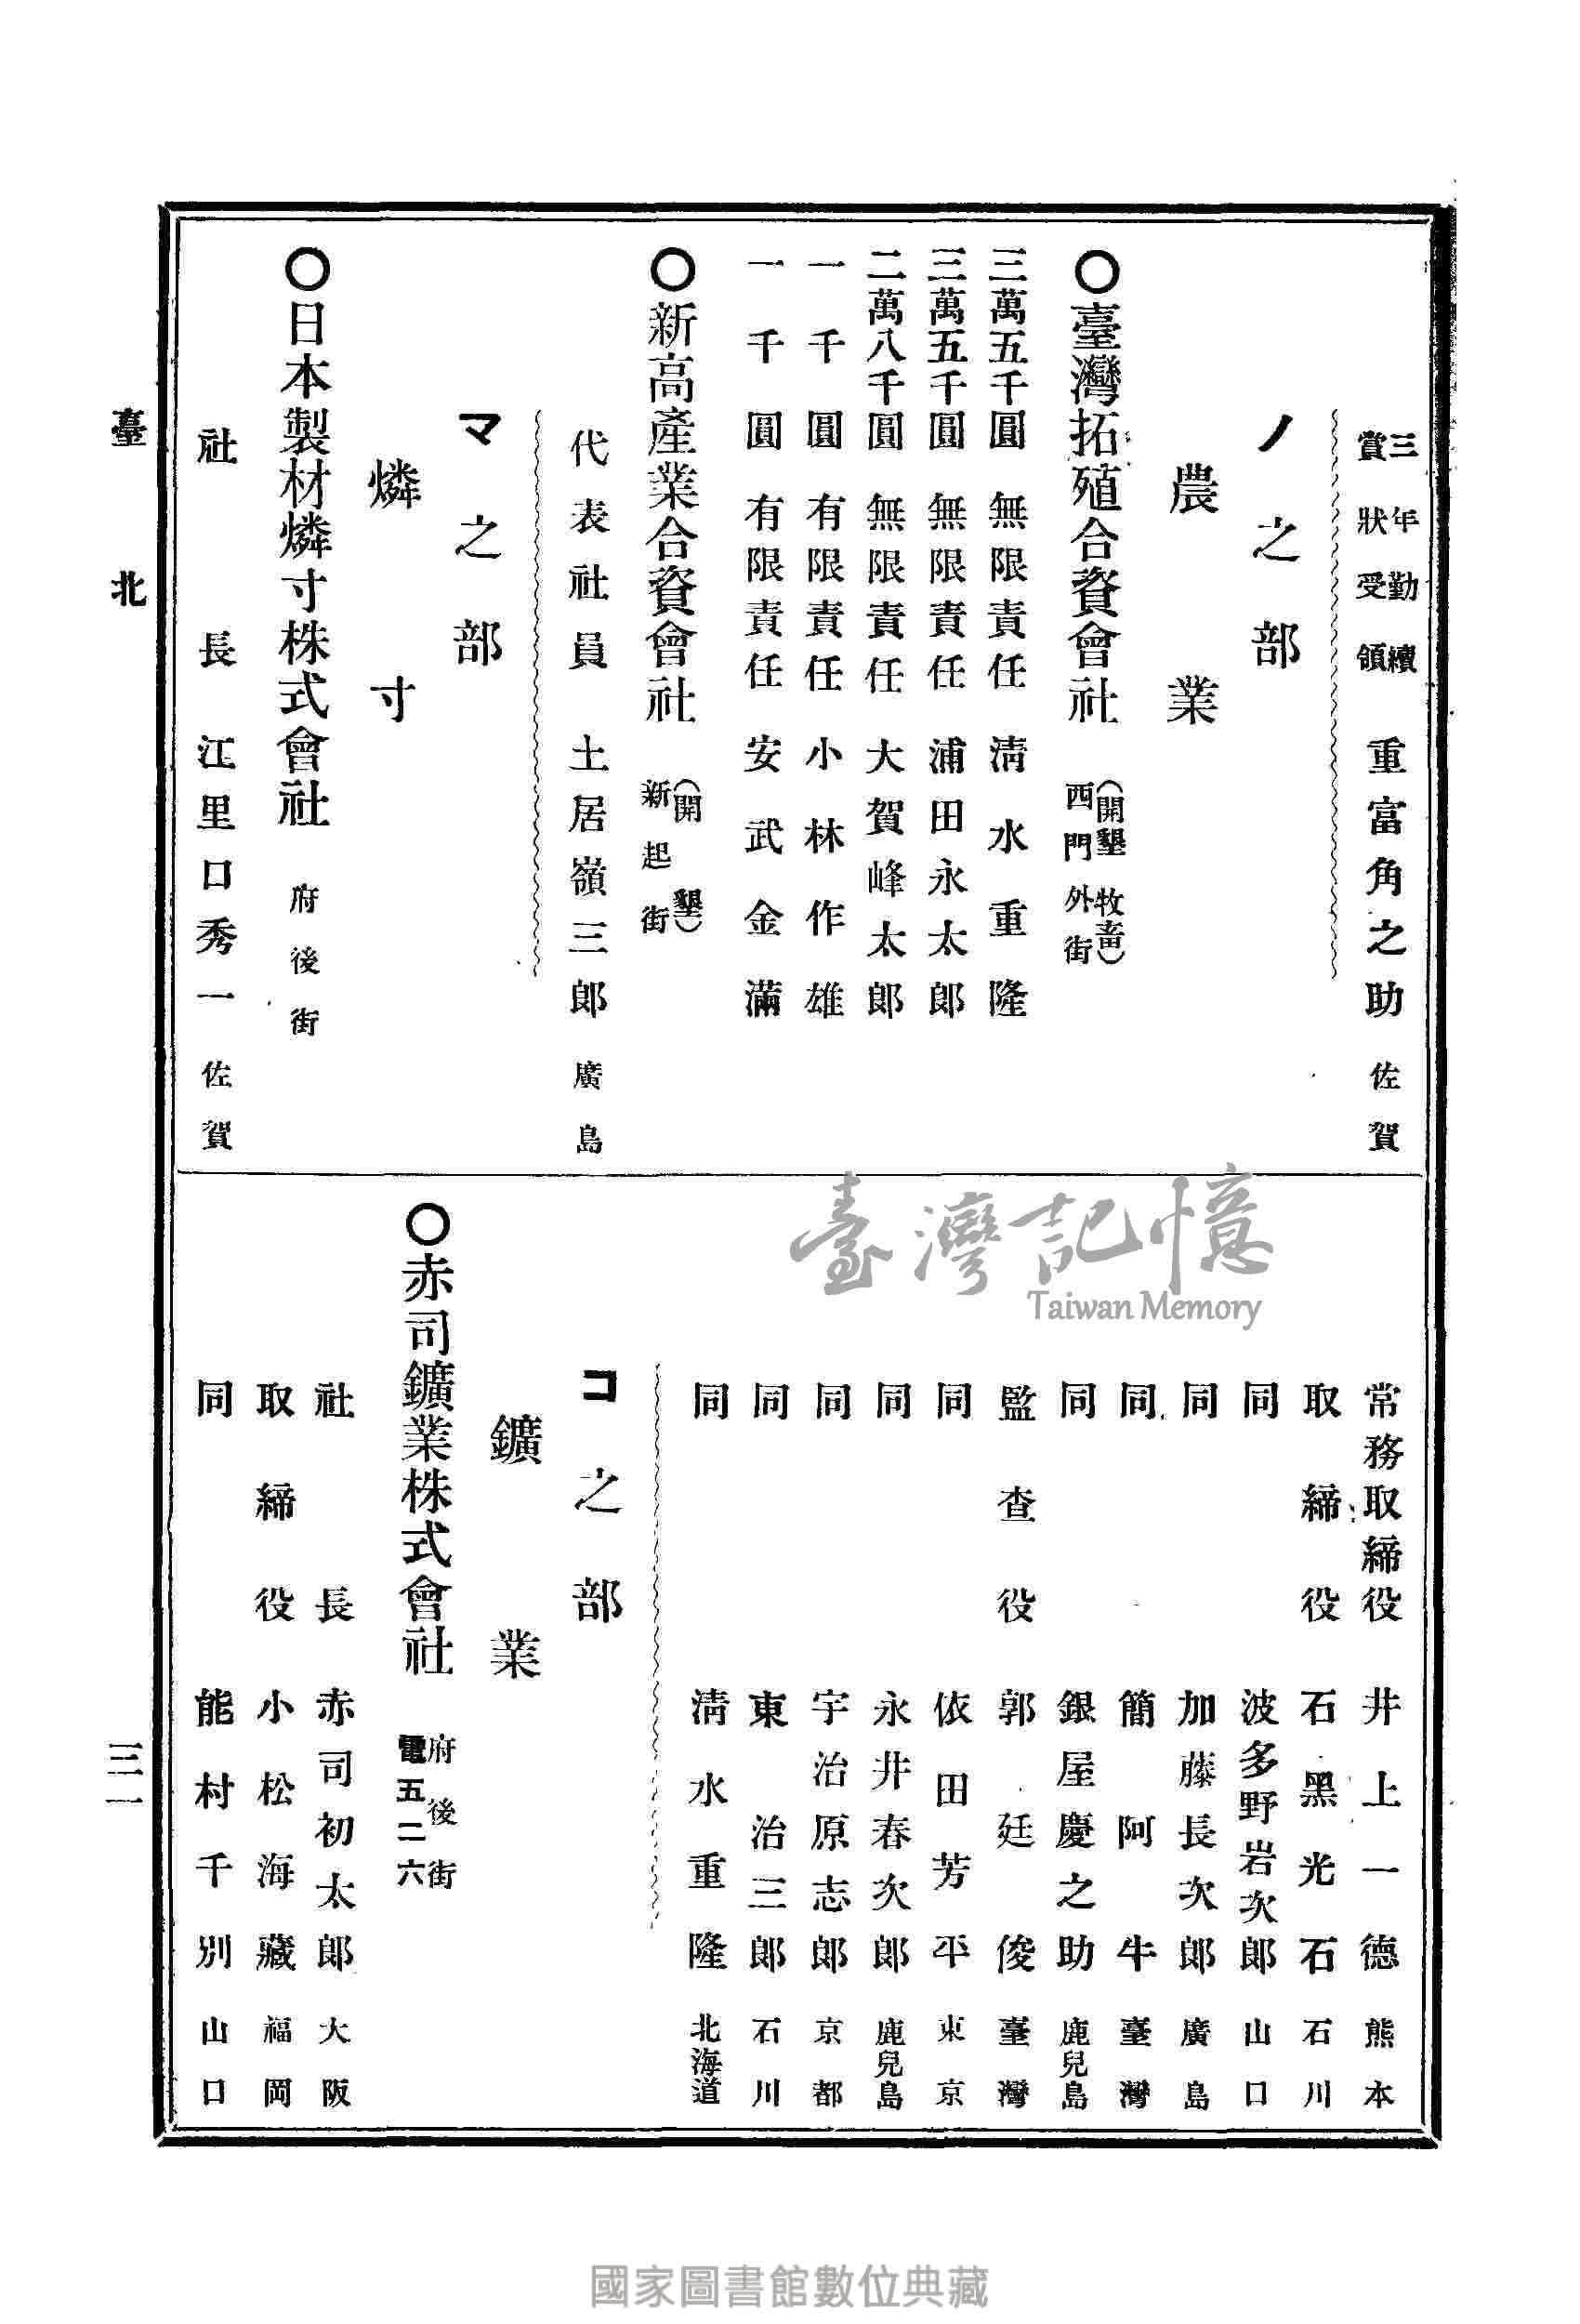 三年勤續
賞狀受領
重富角之助 佐賀
ノ之部
農業
〇臺灣拓殖合資會社
(開墾牧畜)
西門外街
三萬五千圓 無限責任 淸水重隆
三萬五千圓 無限責任 浦田永太郎
二萬八千圓 無限責任 大賀峰太郎
一千圓 有限責任 小林作雄
一千圓 有限責任 安武金滿
〇新高產業合資會社
(開墾)
新起街
代表社員 土居嶺三郎 廣島
マ之部
燐寸
〇日本製材燐寸株式會社 府後街
社長 江里口秀一 佐賀
常務取締役 井上一德 熊本
取締役 石黑光石 石川
同 波多野岩次郎 山口
同 加藤長次郎 廣島
同 簡阿牛 臺灣
同 銀屋慶之助 鹿兒島
監查役 郭廷俊 臺灣
同 依田芳平 東京
同 永井春次郎 鹿兒島
同 宇治原志郎 京都
同 東治三郎 石川
同 淸水重隆 北海道
コ之部
鑛業
〇赤司鑛業株式會社
府後街
電五二六
社長 赤司初太郎 大阪
取締役 小松海藏 福岡
同 能村千別 山口
臺北
三一
臺灣記憶
Taiwan Memory
國家圖書館數位典藏